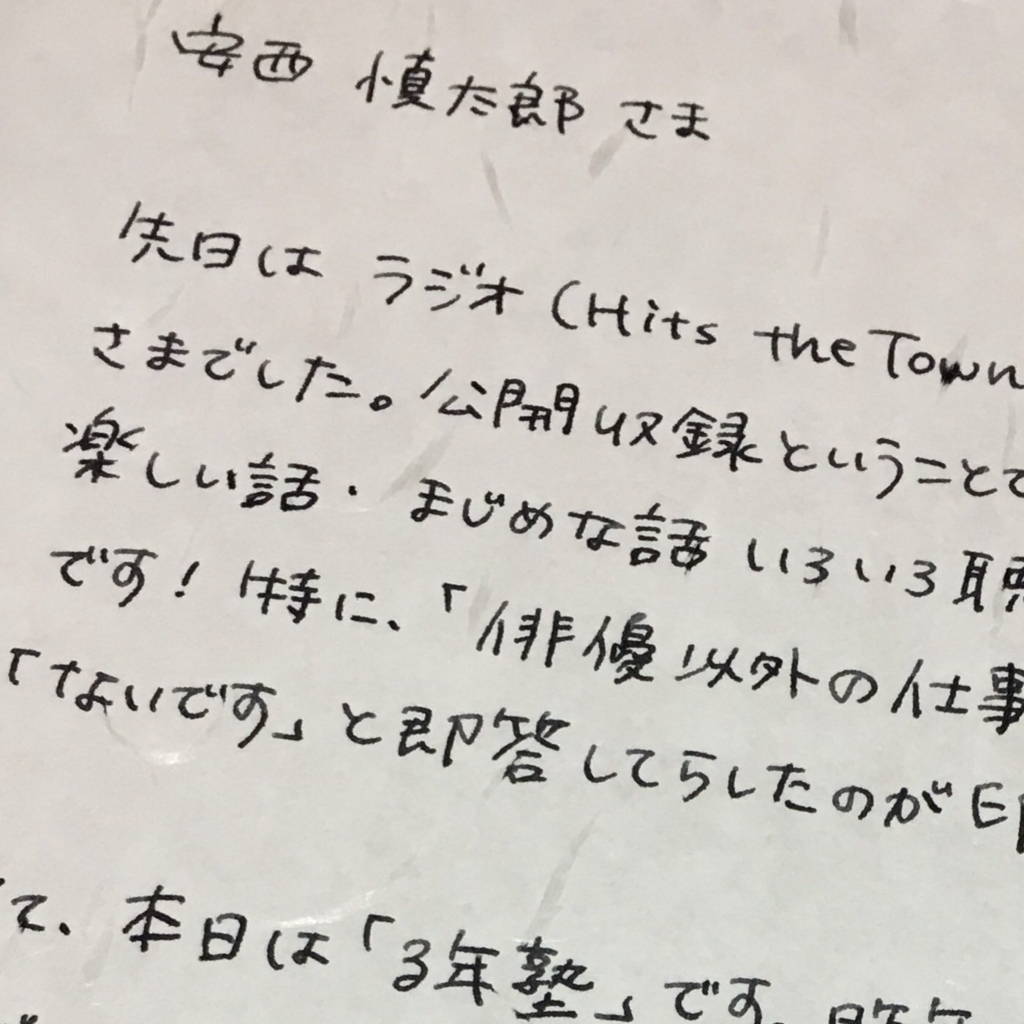 安西 慎太郎 さま
先日は ラジオ (Hits the Town
さまでした。公開収録ということで
楽しい話・まじめな話 いろいろ聴
です！特に、「俳優以外の仕事
「ないです」と即答してらしたのが印
て、本日は「る年塾」です。昨年